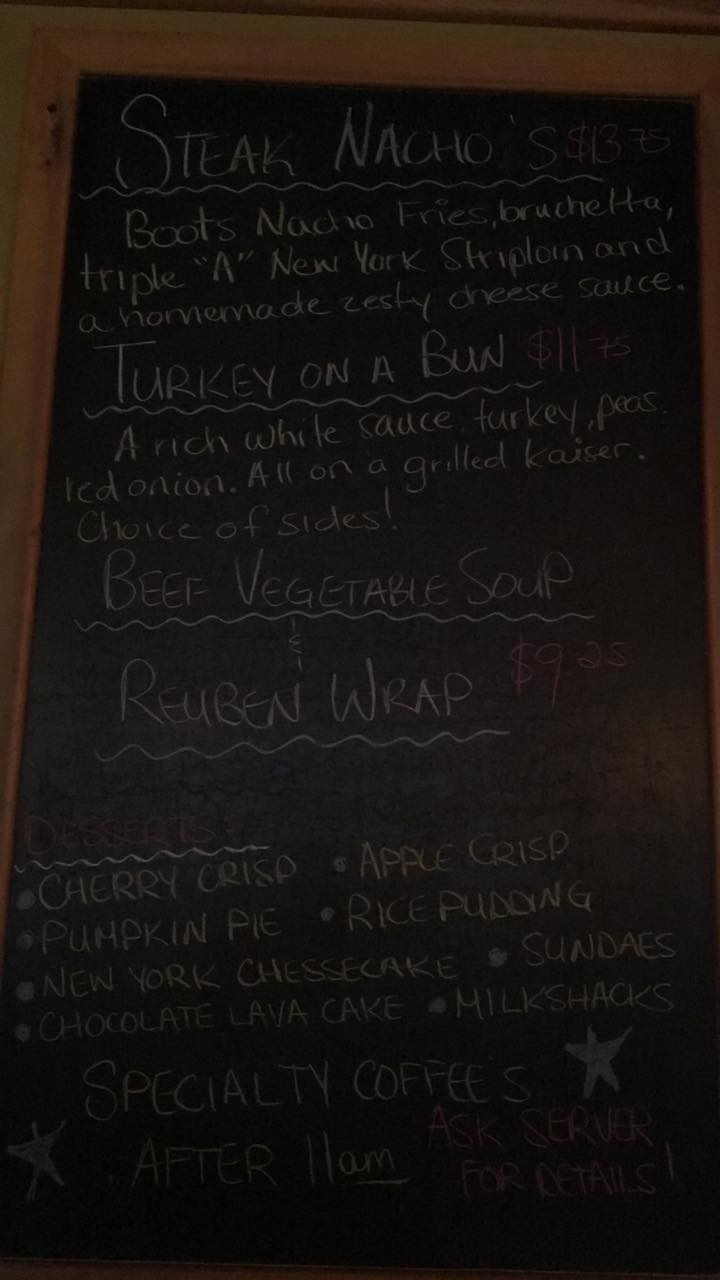 STEAK NACHO'S $13.75
Boots Nacho Fries, bruchetta,
triple "A" New York Striploin and
a homemade zesty cheese sauce.
TURKEY ON A BUN $11.75
A rich white sauce, turkey, peas.
red onion. All on a grilled kaiser.
Choice of sides!
BEEF VEGETABLE SOUP
&
REUBEN WRAP $9.25
DESSERTS:
• CHERRY CRISP • APPLE CRISP
• PUMPKIN PIE • RICE PUDDING
• NEW YORK CHESSECAKE • SUNDAES
• CHOCOLATE LAVA CAKE • MILKSHACKS
SPECIALTY COFFEE'S
AFTER 11am ASK SERVER
FOR DETAILS!